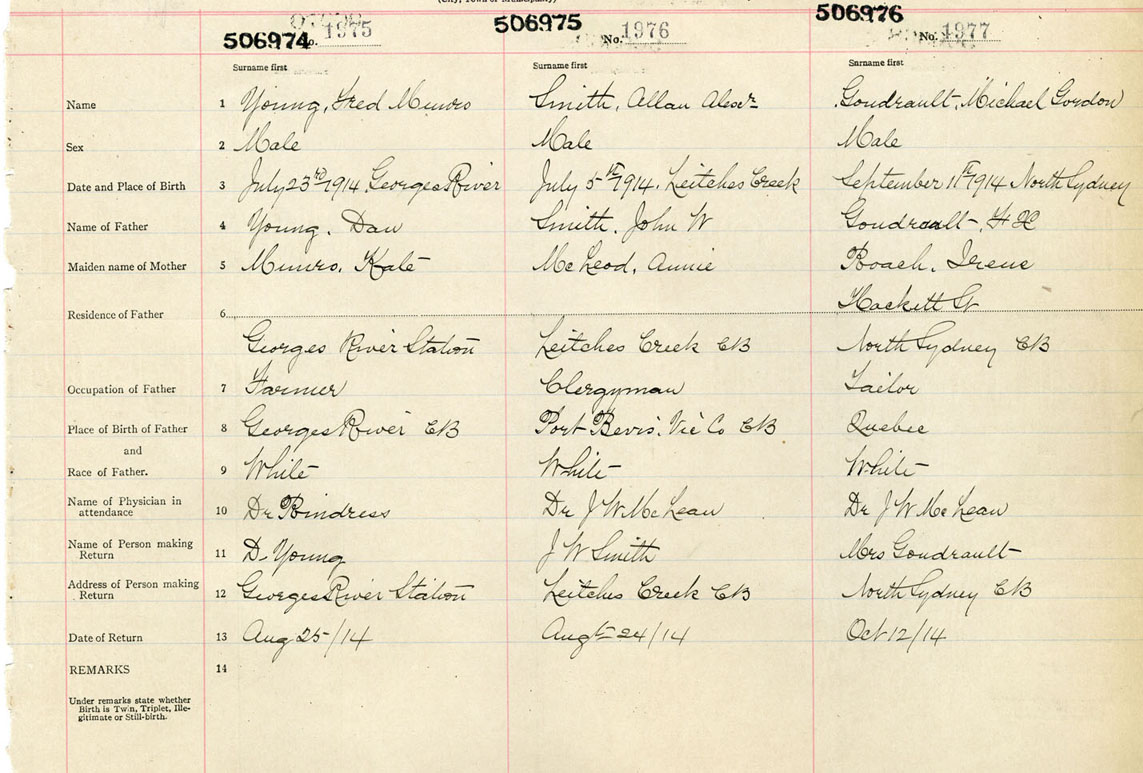 (City, Town or Municipality)
506974 No. 1975 506975 No. 1976 506976 No. 1977
Surname first Surname first Surname first
Name 1 Young, Fred Munro Smith, Allan Alexr Goudrault, Michael Gordon
Sex 2 Male Male Male
Date and Place of Birth 3 July 23rd 1914 Georges River July 5th 1914. Leitches Creek September 11th 1914 North Sydney
Name of Father 4 Young, Dan Smith, John W Goudrault,
Maiden name of Mother 5 Munro, Kate McLeod, Annie Roach, Irene
Hackett St
Residence of Father 6
Georges River Station Leitches Creek CB North Sydney CB
Occupation of Father 7 Farmer Clergyman Tailor
Place of Birth of Father 8 Georges River CB Port Bevis, Vic Co CB Quebec
and
Race of Father. 9 White White White
Name of Physician in
attendance 10 Dr Dr J W McLean Dr J W McLean
Name of Person making
Return 11 D. Young J W Smith Mrs Goudrault
Address of Person making
Return 12 Georges River Station Leitches Creek CB North Sydney CB
Date of Return 13 Aug 25/14 Augt 24/14 Oct 12/14
REMARKS 14
Under remarks state whether
Birth is Twin, Triplet, Ille-
gitimate or Still-birth.